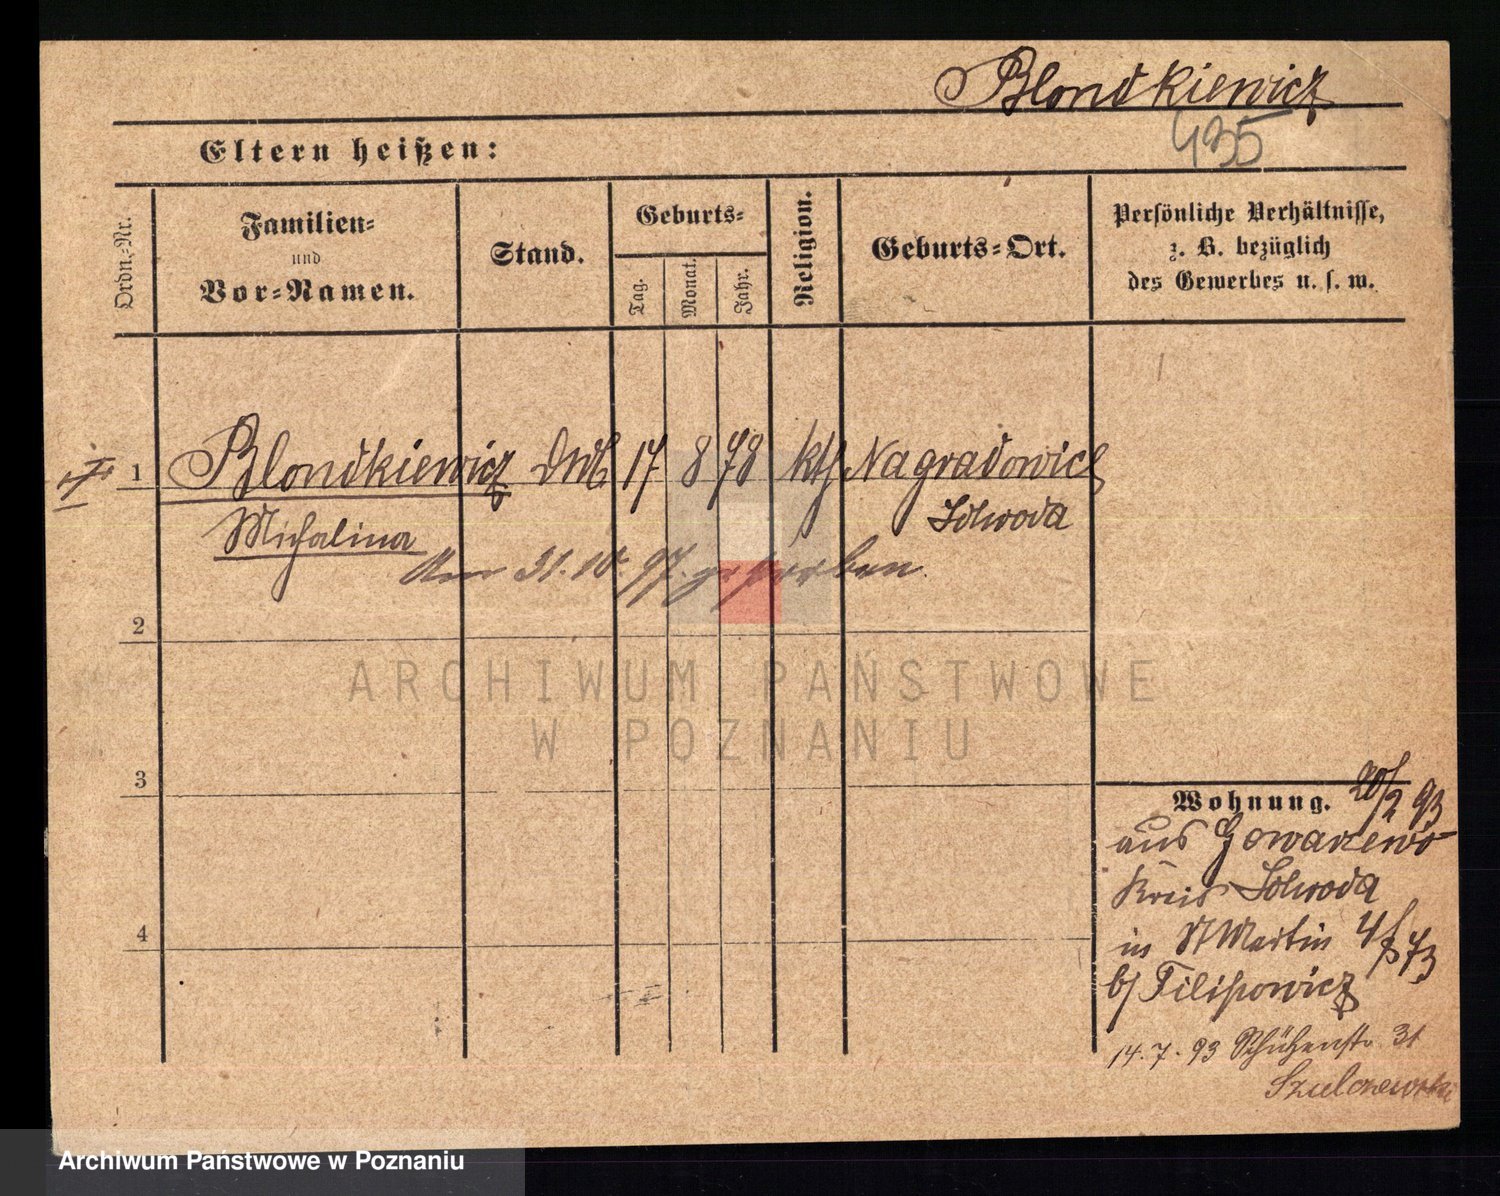 Blondkiewicz
Eltern heißen:
435
Ordn.-Nr.
Familien-
und
Vor-Namen.
Stand.
Geburts-
Tag.
Monat.
Jahr.
Religion.
Geburts-Ort.
Persönliche Verhältnisse,
z. B. bezüglich
des Gewerbes u. s. w.
1 Blondkiewicz 17 8 78 kth Nagradowice
Michalina Schroda
Am 31.10.97. gestorben
2
ARCHIWUM PAŃSTWOWE
W POZNANIU
3
4
Wohnung. 20/2 93
aus Gowarzewo
Kreis Schroda
in St Martin
b/ Filipowicz
14.7.93 Schützenstr 31
Szulczewski
Archiwum Państwowe w Poznaniu